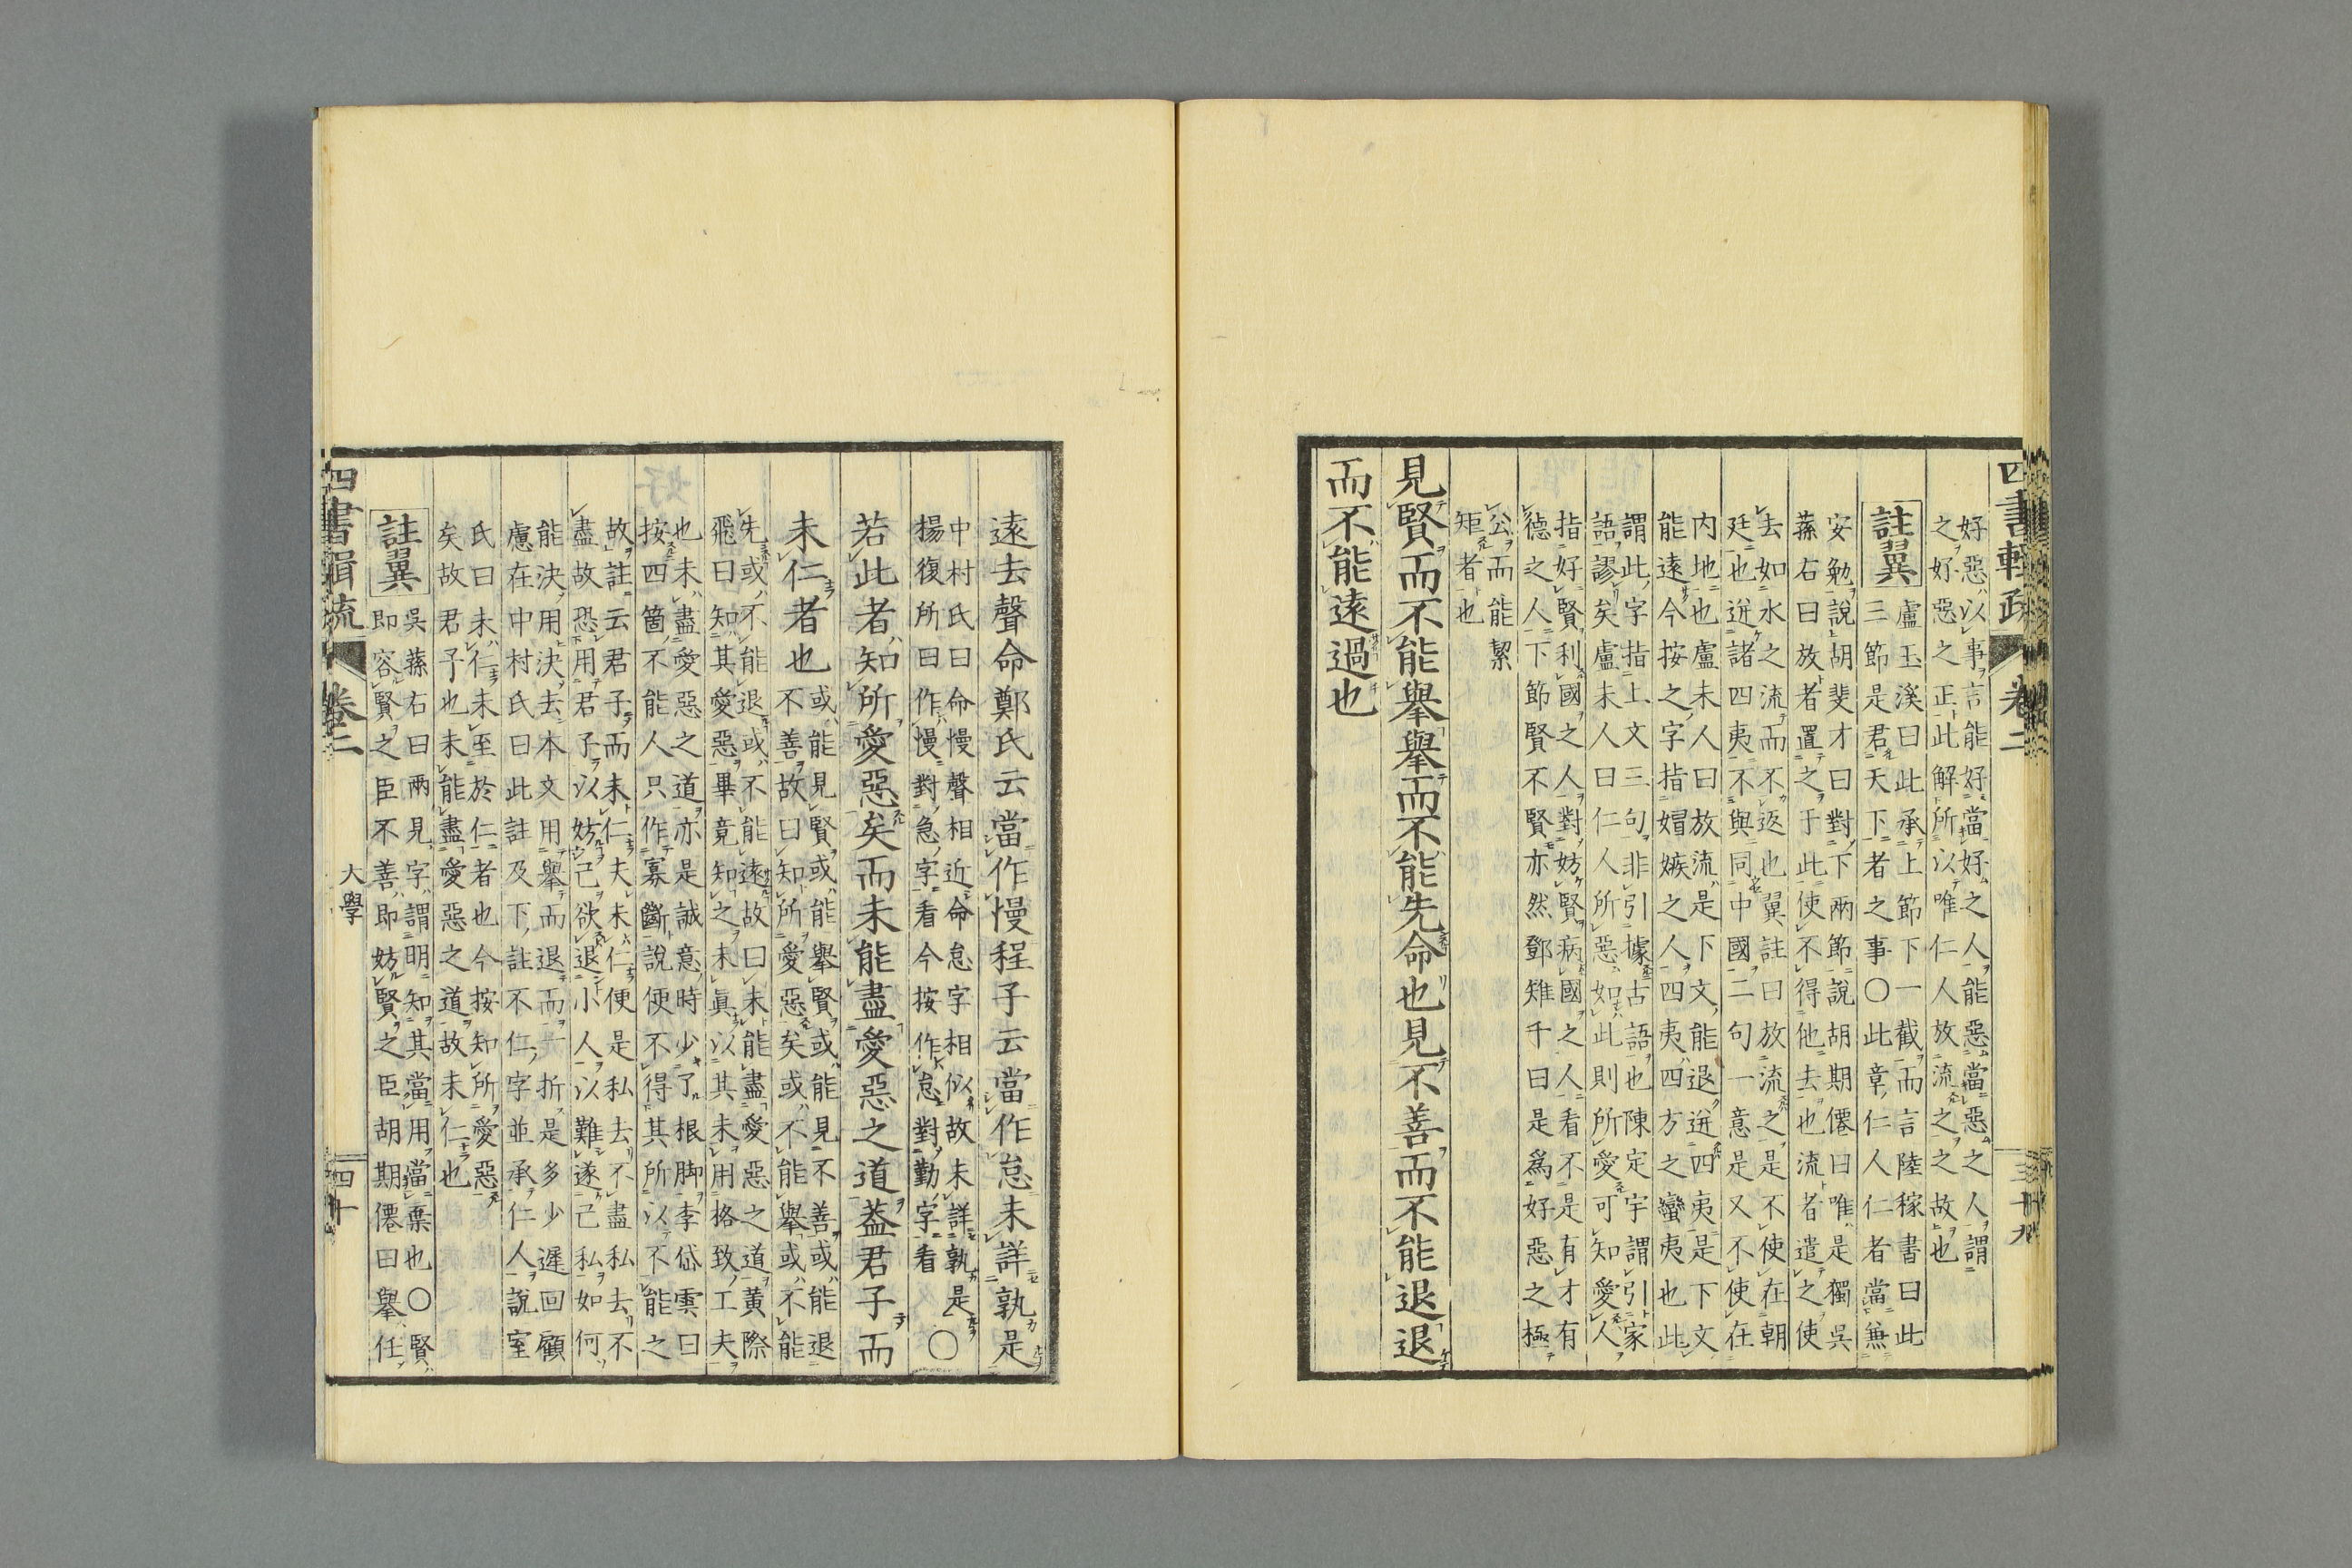 四書輯疏
卷二
三十九
好惡以事言能好當好之人能惡當惡之人謂
之好惡之正此解所以唯仁人放流之之故也
註翼
盧玉溪曰此承上節下一截而言陸稼書曰此
三節是君天下者之事〇此章仁人仁者當無
安勉說胡斐才曰對下兩節說胡期僊曰唯是獨吳
蓀右曰放者置之于此使不得他去也流者遣之使
去如水之流而不返也翼註曰放流之是不使在朝
廷也迸諸四夷不與同中國二句一意是又不使在
內地也盧未人曰放流是下文能退迸四夷是下文
能遠今按之字指媢嫉之人四夷四方之蠻夷也此
謂此字指上文三句非引據古語也陳定宇謂引家
語謬矣盧未人曰仁人所惡如此則所愛可知愛人
指好賢利國之人對妨賢病國之人看不是有才有
德之人下節賢不賢亦然鄧雉千曰是爲好惡之極
公而能絜
矩者也
見賢而不能舉舉而不能先命也見不善而不能退退
而不能遠過也
遠去聲命鄭氏云當作慢程子云當作怠未詳孰是
中村氏曰命慢聲相近命怠字相似故未詳孰是〇
揚復所曰作慢對急字看今按作怠對勤字看
若此者知所愛惡矣而未能盡愛惡之道蓋君子而
未仁者也
或能見賢或能舉賢或能見不善或能退
不善故曰知所愛惡矣或不能舉或不能
先或不能退或不能遠故曰未能盡愛惡之道黃際
飛曰知其愛惡畢竟知之未眞以其未用格致工夫
也未盡愛惡之道亦是誠意時少了根脚李岱雲曰
按四箇不能人只作寡斷說便不得其所以不能之
故註云君子而未仁夫未仁便是私去不盡私去不
盡故恐用君子以妨己欲退小人以難遂己私如何
能決用決去本文用舉而退而一折是多少遲回顧
慮在中村氏曰此註及下註不仁字並承仁人說室
氏曰未仁未至於仁者也今按知所愛惡
矣故君子也未能盡愛惡之道故未仁也
註翼
吳蓀右曰兩見字謂明知其當用當棄也〇賢
即容賢之臣不善即妨賢之臣胡期僊曰舉任
四書輯疏
卷二
大學
四十